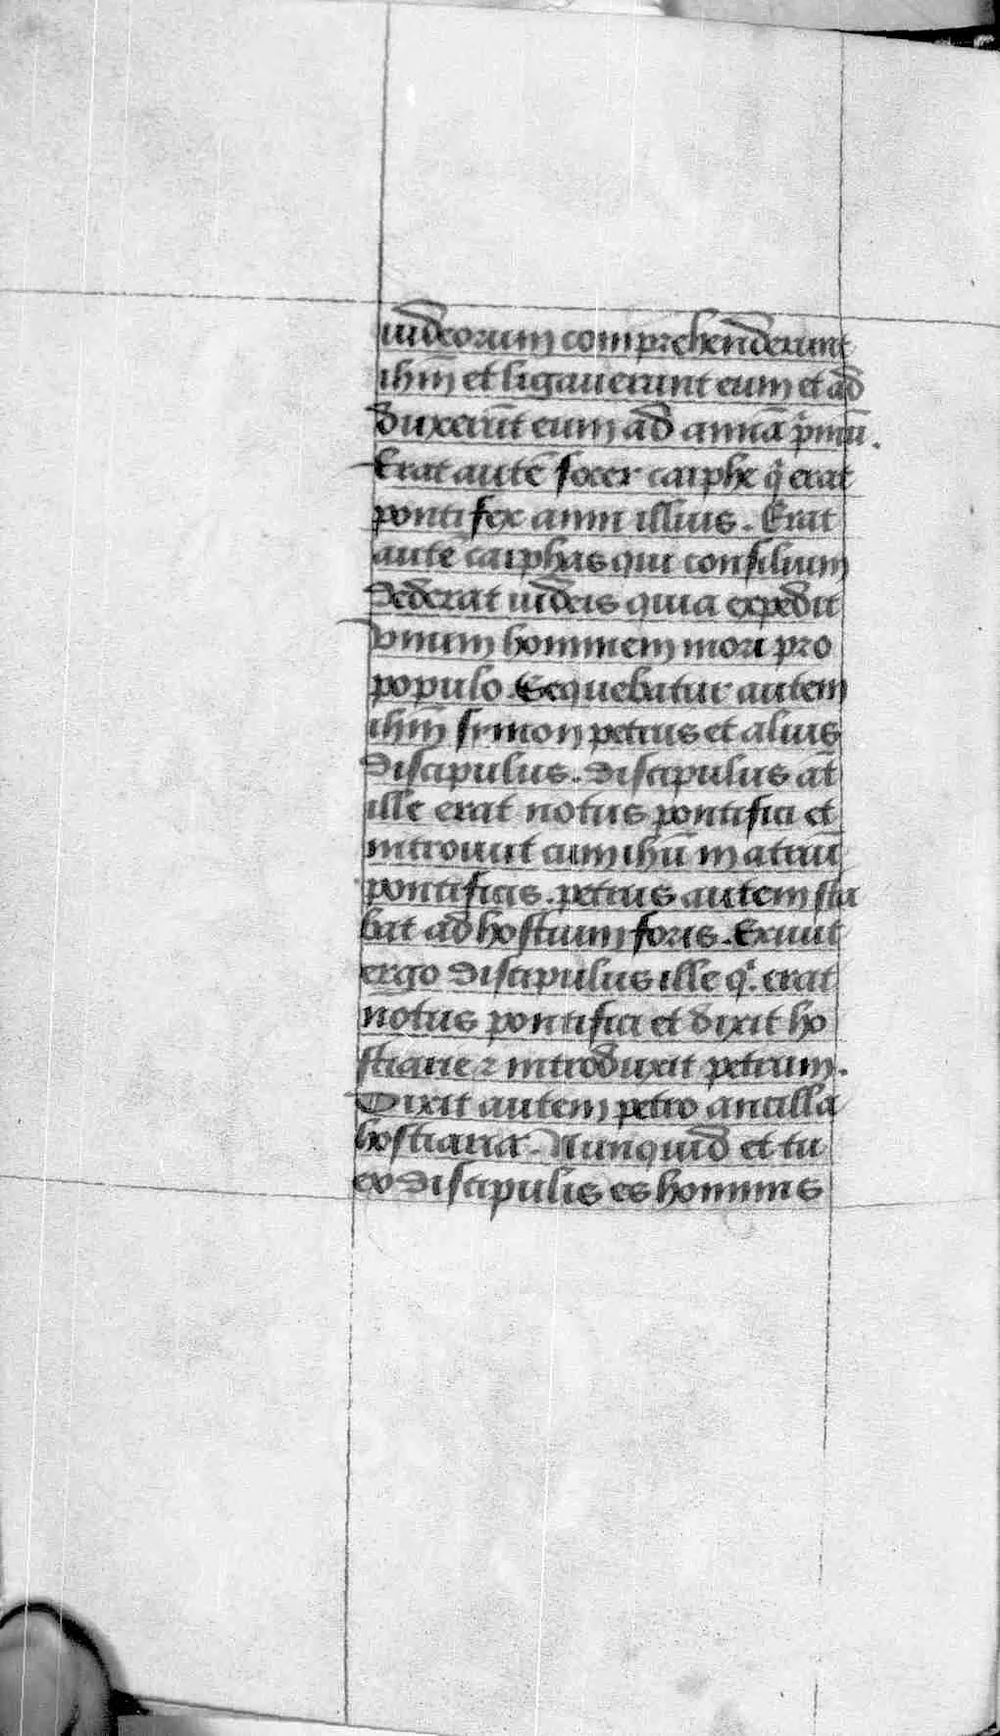 iudeorum comprehenderunt
ihm̄ et ligauerunt eum et ad
duxerūt eum ad annā pͥmū.
Erat autē socer caiphe qͥ erat
pontifex anni illius. Erat
autē caiphas qui consilium
dederat iudeis quia expedit
vnum hominem mori pro
populo. Sequebatur autem
ihm̄ simon petrus et alius
discipulus. discipulus at̄
ille erat notus pontifici et
introiuit cum ihū in atriū
pontificis. petrus autem sta
bat ad hostium foris. Exiuit
ergo discipulus ille qͥ. erat
notus pontifici et dixit ho
stiarie ⁊ introduxit petrum.
Dixit autem petro ancilla
hostiaria. Nunquid et tu
ex discipulis es hominis